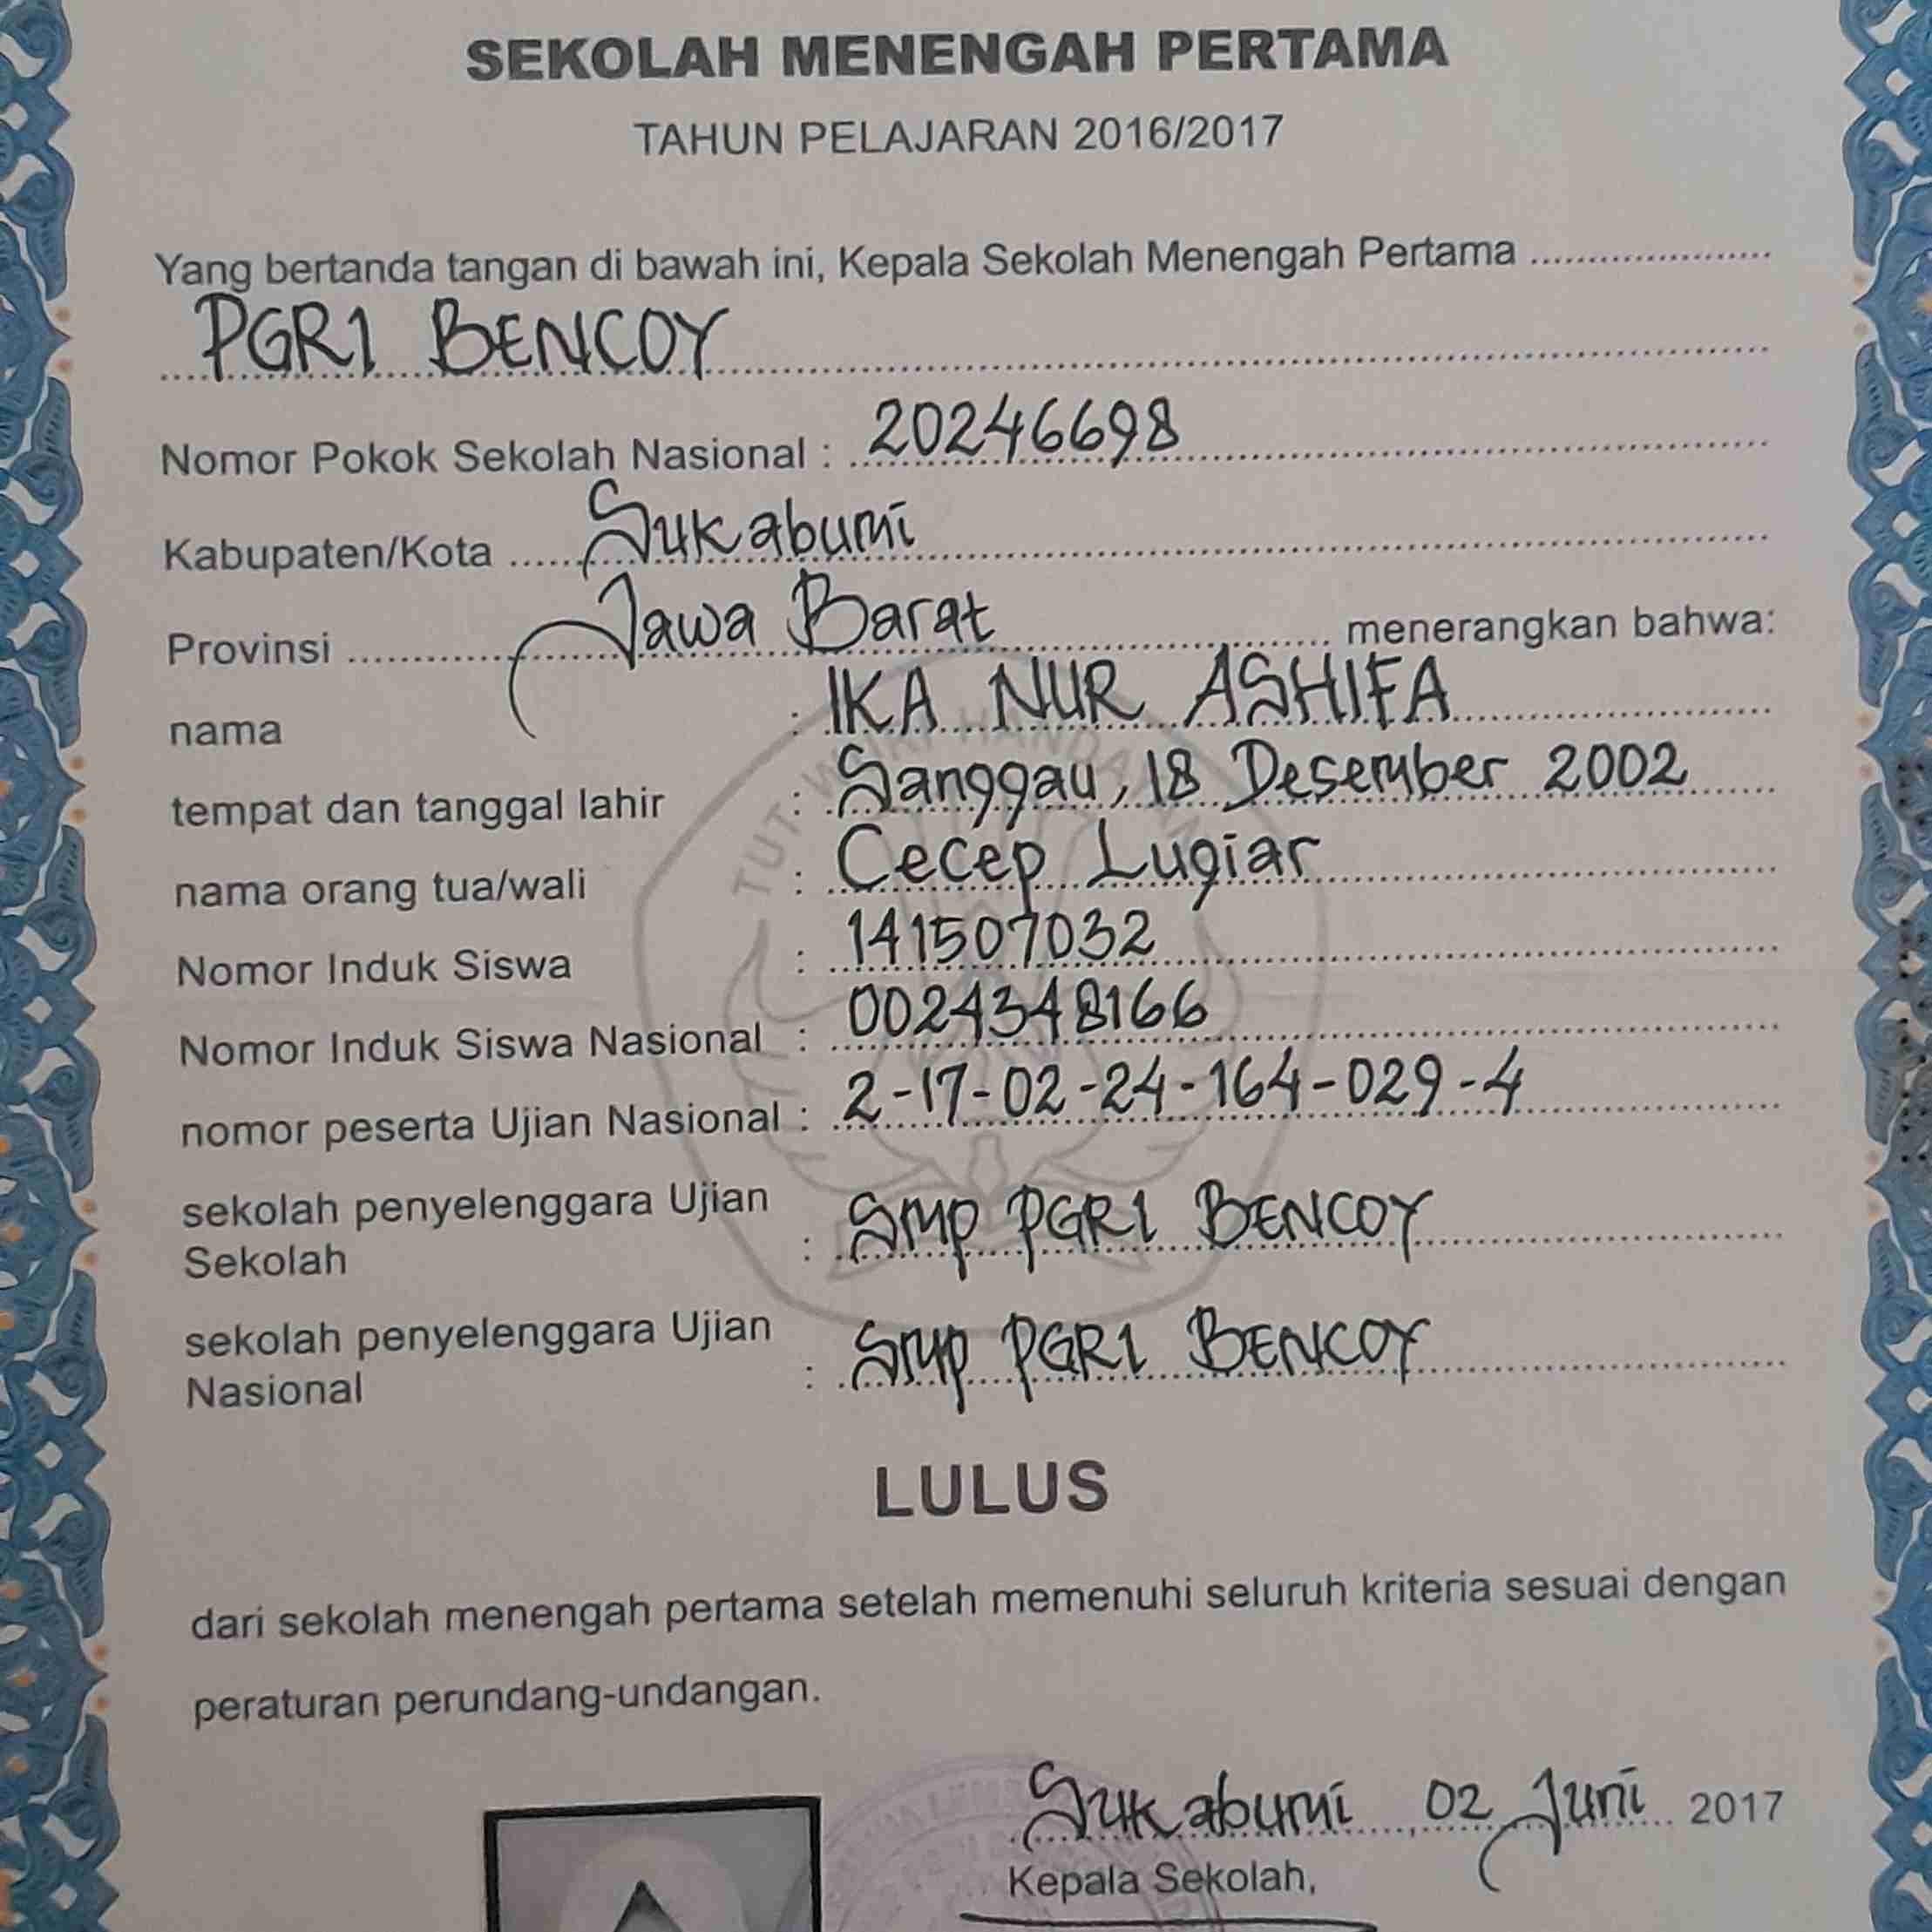 SEKOLAH MENENGAH PERTAMA
TAHUN PELAJARAN 2016/2017
Yang bertanda tangan di bawah ini, Kepala Sekolah Menengah Pertama
PGRI BENCOY
Nomor Pokok Sekolah Nasional : 20246698
Kabupaten/Kota Sukabumi
Provinsi Jawa Barat menerangkan bahwa:
nama : IKA NUR ASHIFA
tempat dan tanggal lahir : Sanggau, 18 Desember 2002
nama orang tua/wali : Cecep Lugiar
Nomor Induk Siswa : 141507032
Nomor Induk Siswa Nasional : 0024348166
nomor peserta Ujian Nasional : 2-17-02-24-164-029-4
sekolah penyelenggara Ujian
Sekolah : SMP PGRI BENCOY
sekolah penyelenggara Ujian
Nasional : SMP PGRI BENCOY
LULUS
dari sekolah menengah pertama setelah memenuhi seluruh kriteria sesuai dengan
peraturan perundang-undangan.
Sukabumi, 02 Juni 2017
Kepala Sekolah,
TUT WURI HANDAYANI